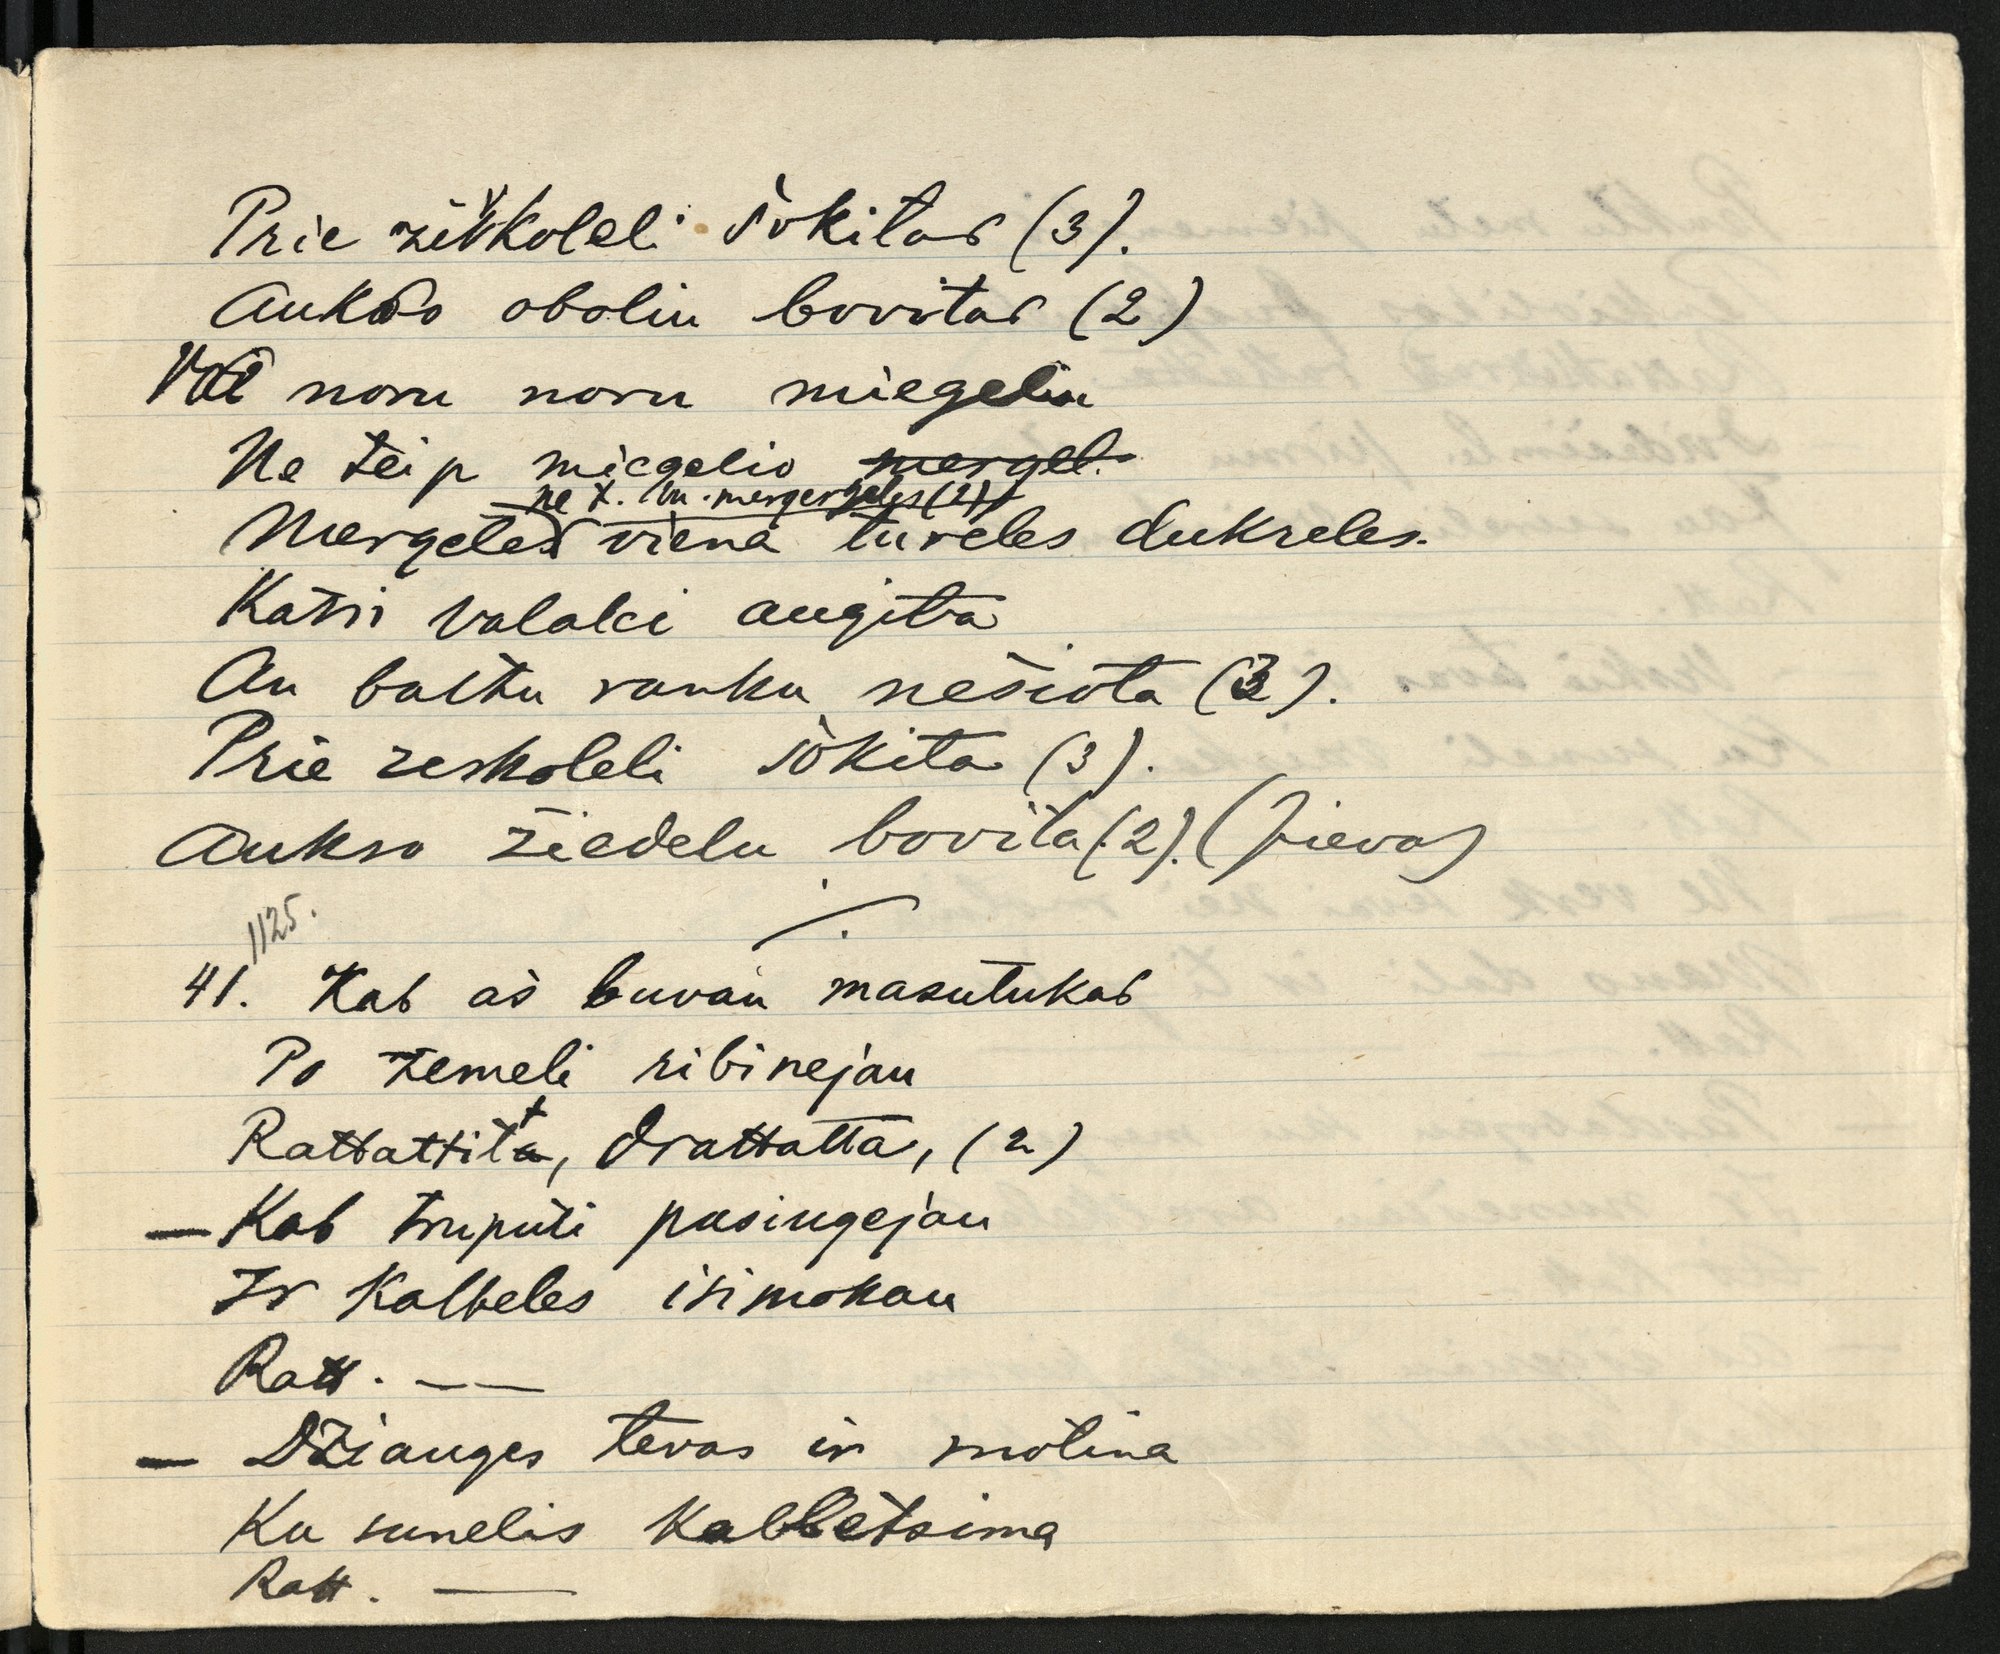 Prie zirkoleli šokitas (3).
Aukso oboliu bovitas (2)
Vai noru noru miegeliu
Ne teip miegelio mergel.
ne t. m. mergergeles (2)
Mergeles viena tureles dukreles.
Katri valalei augita
An baltu ranku nešiota (3).
Prie zerkoleli šokita (3).
Aukso žiedelu bovita (2). (Pieva)
1125.
41. Kab aš buvau mazutukas
Po žemeli ribinejau
Rattattitta, drattatta, (2)
— Kab truputi paaugejau
Ir Kalbeles isimokau
Ratt. — —
— Džiauges tevas ir motina
Ku sunelis Kalbetsima
Ratt. —